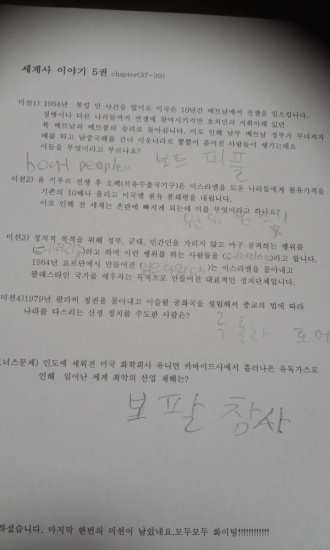 세계사 이야기 5권 chapter(37~39)
미션1) 1964년 통킹 만 사건을 빌미로 미국은 10년간 베트남에서 전쟁을 일으킵니다.
정병이나 다른 나라들까지 전쟁에 참여시키지만 호치민의 지휘아래 있던
북 베트남과 베트콩의 승리로 돌아갑니다. 이로 인해 남부 베트남 정부가 무너지자
배를 타고 남중국해를 건너 이웃나라로 뿔뿔이 흩어진 사람들이 생기는데요
이들을 무엇이라고 부르나요?
boat people 보트 피플
미션2) 욤 키푸르 전쟁 후 오펙(석유수출국기구)은 이스라엘을 도운 나라들에게 원유가격을
기존의 10배나 올리고 미국엔 원유 봉쇄령을 내립니다.
이로 인해 전 세계는 혼란에 빠지게 되는데 이를 무엇이라고 하나요?
미션3) 정치적 목적을 위해 정부, 군대, 민간인을 가리지 않고 마구 공격하는 행위를
라고 하며 이런 행위를 하는 사람들을 라고 합니다.
1964년 요르단에서 만들어진 는 이스라엘을 몰아내고
팔레스타인 국가를 세우자는 목적으로 만들어진 대표적인 정치단체입니다.
미션4)1979년 팔라비 정권을 몰아내고 이슬람 공화국을 설립해서 종교의 법에 따라
나라를 다스리는 신정 정치를 주도한 사람은?
호메
너스문제) 인도에 세워진 미국 화학회사 유니언 카바이드사에서 흘러나온 유독가스로
인해 일어난 세계 최악의 산업 재해는?
보팔 참사
하셨습니다. 마지막 한번의 미션이 남았네요.모두모두 화이팅!!!!!!!!!!!!